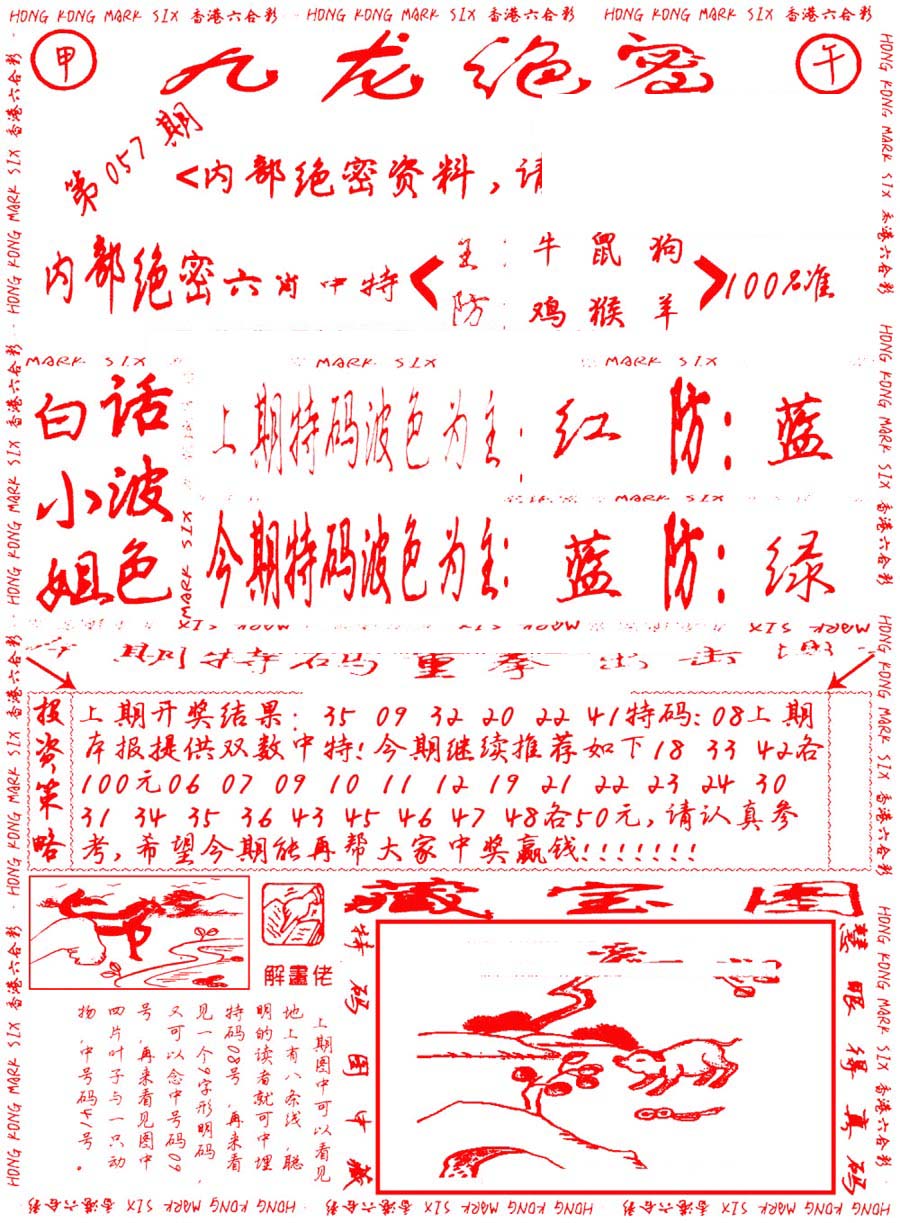 HONG KONG MARK SIX 香港六合彩 HONG KONG MARK SIX 香港六合彩 HONG KONG MARK SIX 香港六合彩
甲 九龙绝密 午
第057期
<内部绝密资料，请
内部绝密六肖中特
主：牛 鼠 狗
防：鸡 猴 羊
100%准
MARK SIX MARK SIX MARK SIX
白话
小波
姐色
上期特码波色为主：红 防：蓝
MARK SIX
今期特码波色为主：蓝 防：绿
MARK SIX
期特码重拳出击
投资策略
上期开奖结果：35 09 32 20 22 41特码：08上期
本报提供双数中特！今期继续推荐如下18 33 42各
100元06 07 09 10 11 12 19 21 22 23 24 30
31 34 35 36 43 45 46 47 48各50元，请认真参
考，希望今期能再帮大家中奖赢钱！！！！！！！
解畫佬
藏宝图
特码图中藏
慧眼得真码
上期图中可以看见
地上有八条线，聪
明的读者就可中埋
特码08号，再来看
见一个6字形明码，
又可以念中号码09
号，再来看见图中
四片叶子与一只动
物，中号码14号。
HONG KONG MARK SIX 香港六合彩 HONG KONG MARK SIX 香港六合彩 HONG KONG MARK SIX 香港六合彩